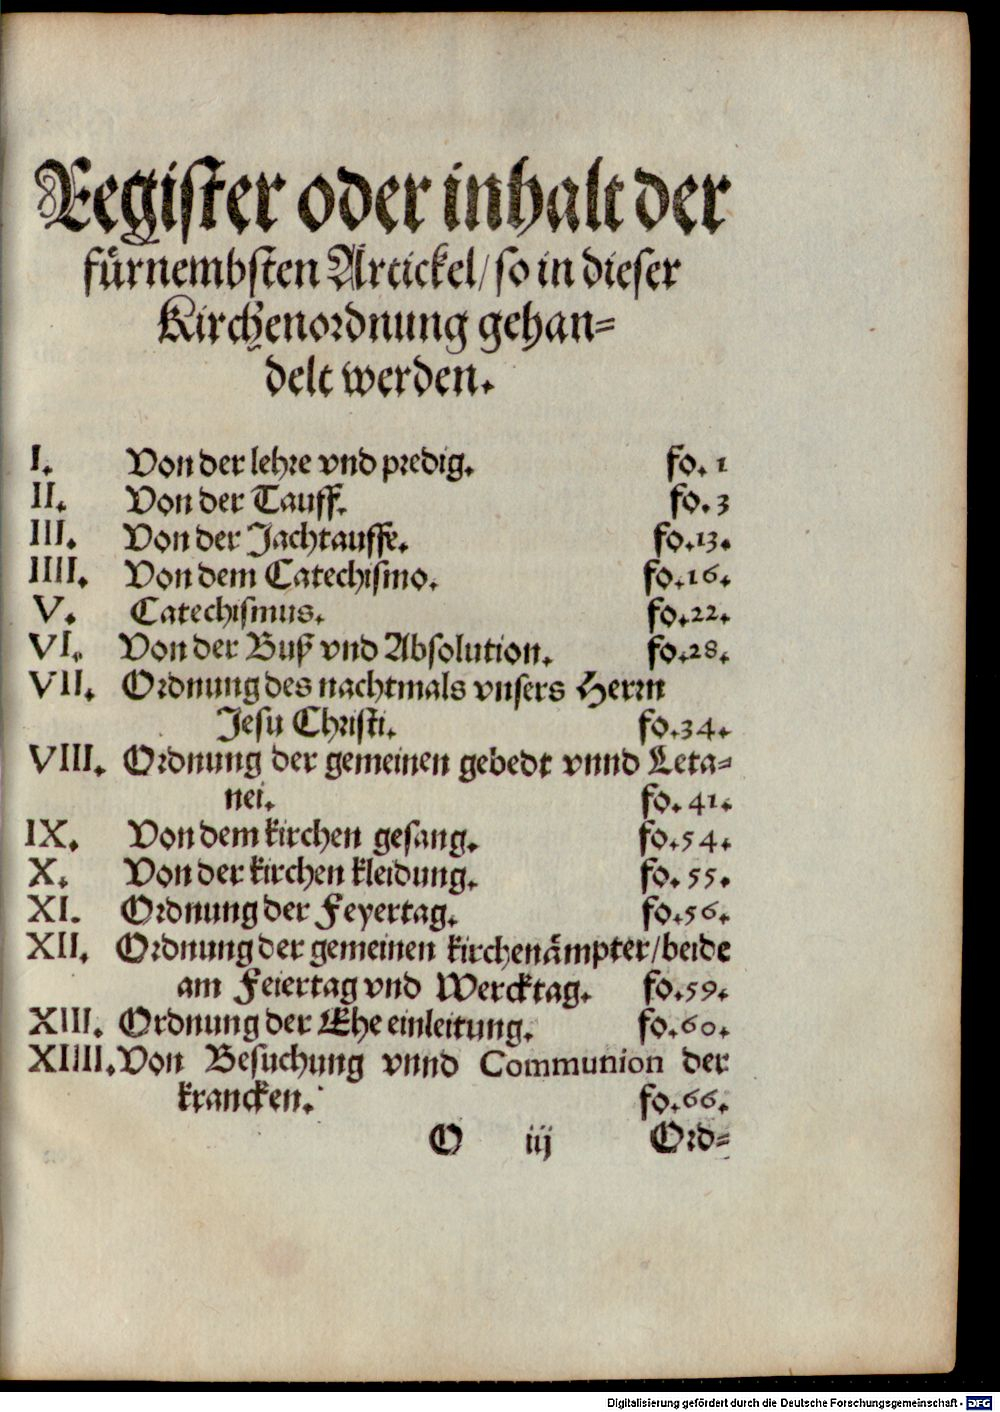 Register oder inhalt der
fürnembsten Artickel/ so in dieser
Kirchenordnung gehan-
delt werden.
I. Von der lehre vnd predig. fo. 1
II. Von der Tauff. fo. 3
III. Von der Jachtauffe. fo. 13.
IIII. Von dem Catechismo. fo. 16.
V. Catechismus. fo. 22.
VI. Von der Buß vnd Absolution. fo. 28.
VII. Ordnung des nachtmals vnsers Herrn
Jesu Christi. fo. 34.
VIII. Ordnung der gemeinen gebedt vnnd Leta-
nei. fo. 41.
IX. Von dem kirchen gesang. fo. 54.
X. Von der kirchen kleidung. fo. 55.
XI. Ordnung der Feyertag. fo. 56.
XII. Ordnung der gemeinen kirchenämpter/ beide
am Feiertag vnd Wercktag. fo. 59.
XIII. Ordnung der Ehe einleitung. fo. 60.
XIIII. Von Besuchung vnnd Communion der
krancken. fo. 66.
O iij Ord-
Digitalisierung gefördert durch die Deutsche Forschungsgemeinschaft - DFG